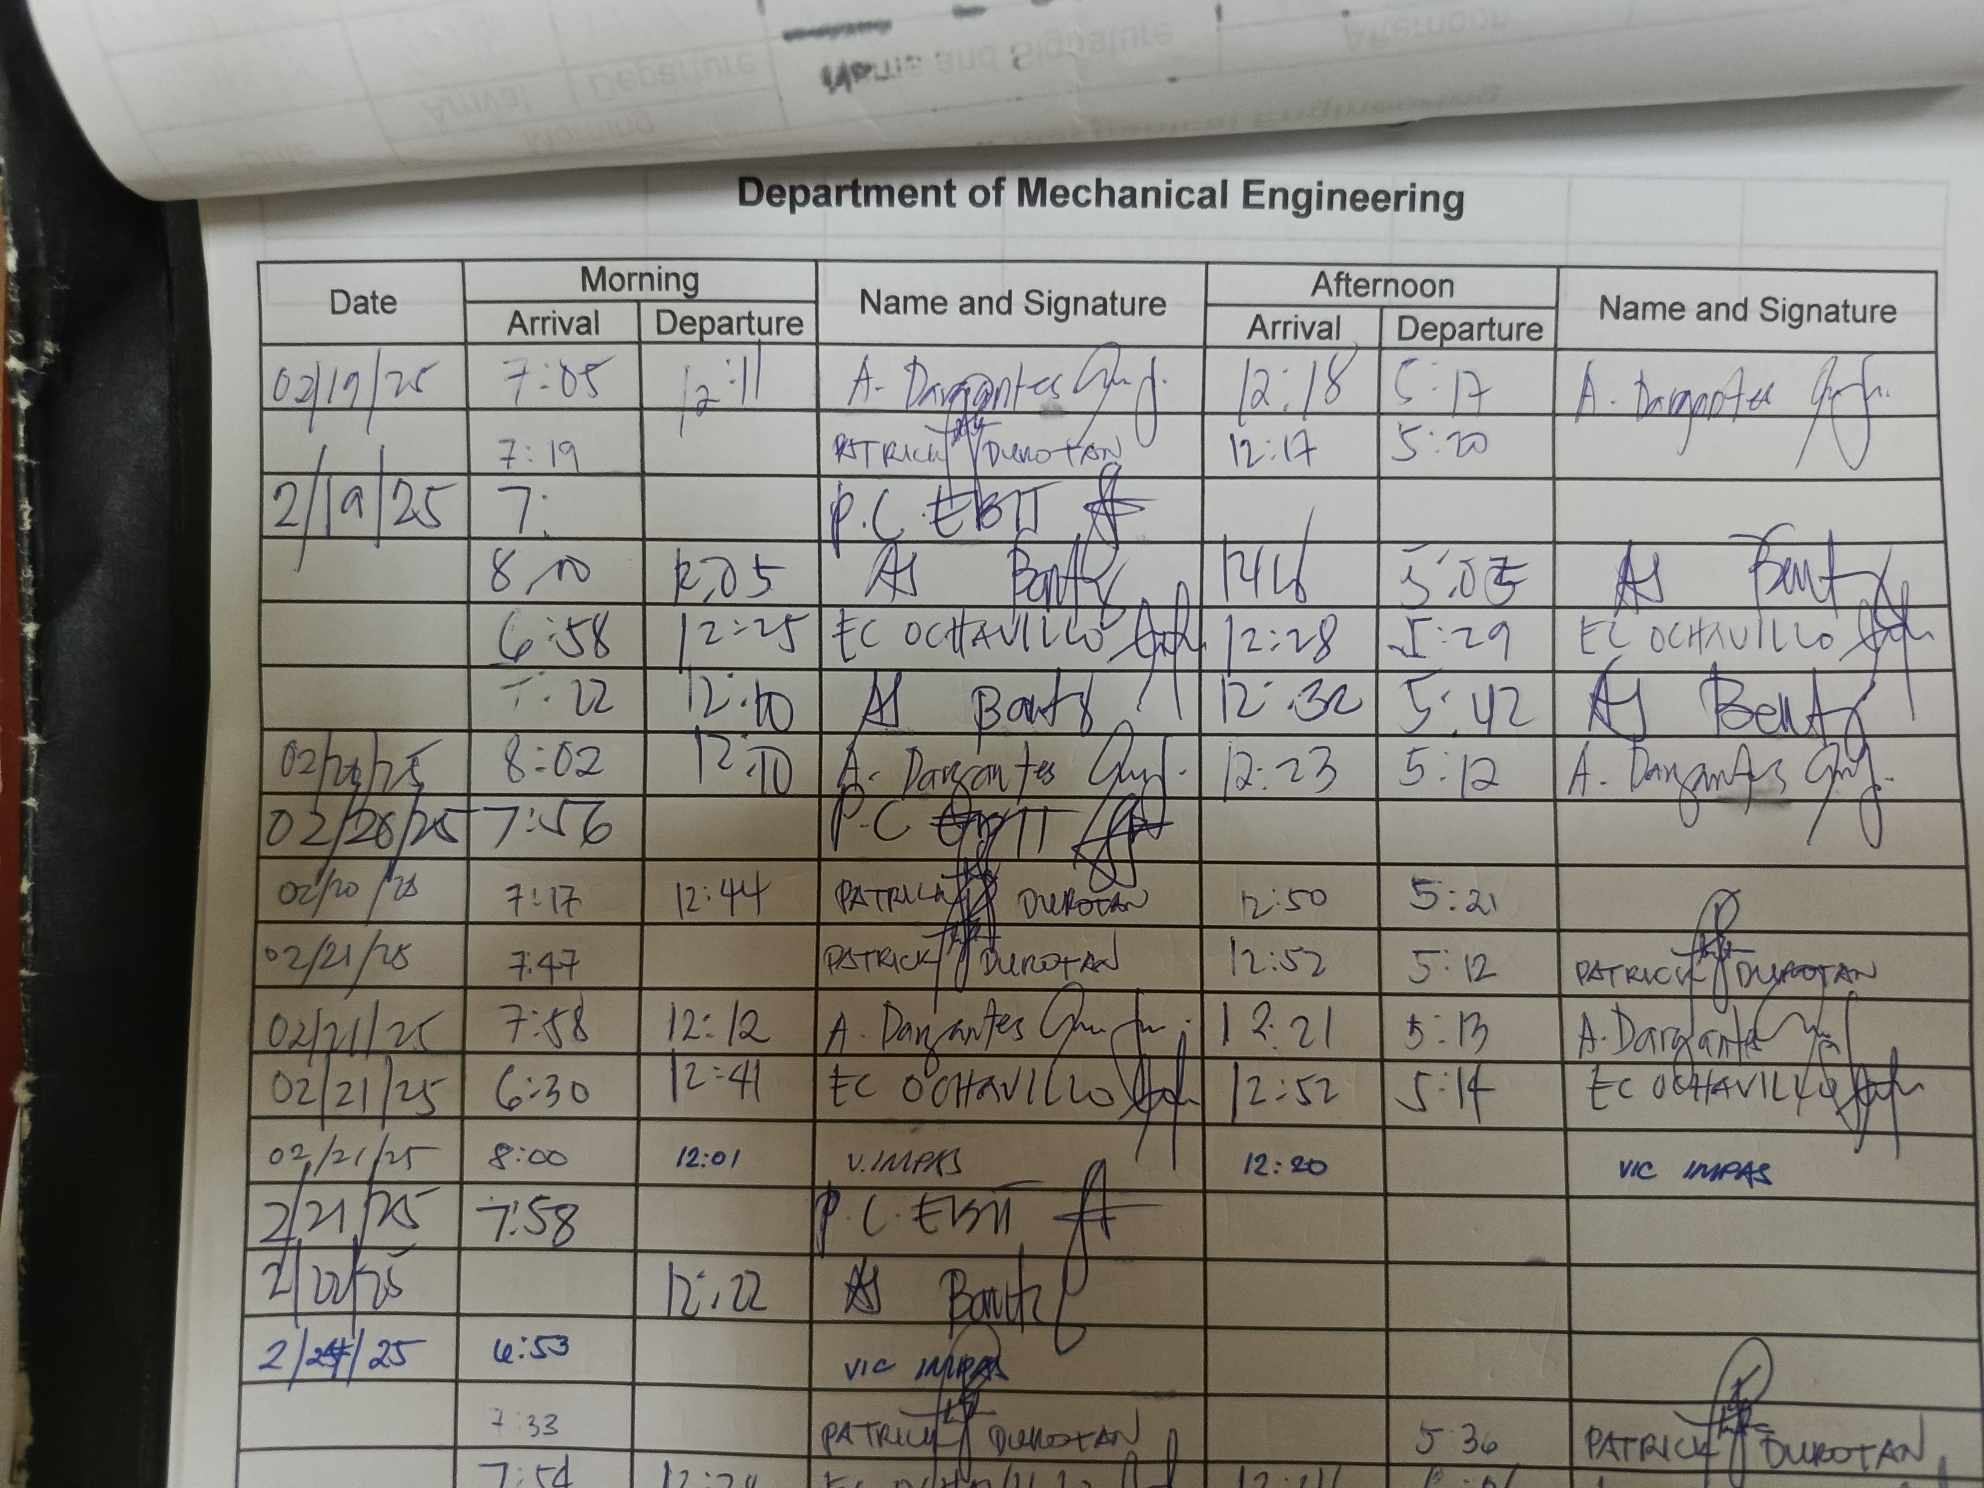 Department of Mechanical Engineering
Date Morning Name and Signature Afternoon Name and Signature
Arrival Departure Arrival Departure
02/19/25 7:05 12:11 A. Dargantes 12:18 5:17 A. Dargantes
7:19 PATRICK DUROTAN 12:17 5:20
2/19/25 7: P.C. EBIT
8:10 12:05 AJ 5:05 AJ
6:58 12:25 EC OCHAVILLO 12:28 5:29 EC OCHAVILLO
7:22 12:10 AJ 12:32 5:42 AJ
02/20/25 8:02 12:10 A. Dargantes 12:23 5:12 A. Dargantes
02/20/25 7:56 P.C
02/20/25 7:17 12:44 PATRICK DUROTAN 12:50 5:21
02/21/25 7:47 PATRICK DUROTAN 12:52 5:12 PATRICK DUROTAN
02/21/25 7:58 12:12 A. Dargantes 12:21 5:13 A. Dargantes
02/21/25 6:30 12:41 EC OCHAVILLO 12:52 5:14 EC OCHAVILLO
02/21/25 8:00 12:01 V. IMPAS 12:20 VIC IMPAS
2/21/25 7:58 P.C. EBIT
2/22/25 12:22 AJ
2/24/25 6:53 VIC IMPAS
7:33 PATRICK DUROTAN 5:36 PATRICK DUROTAN
7:54